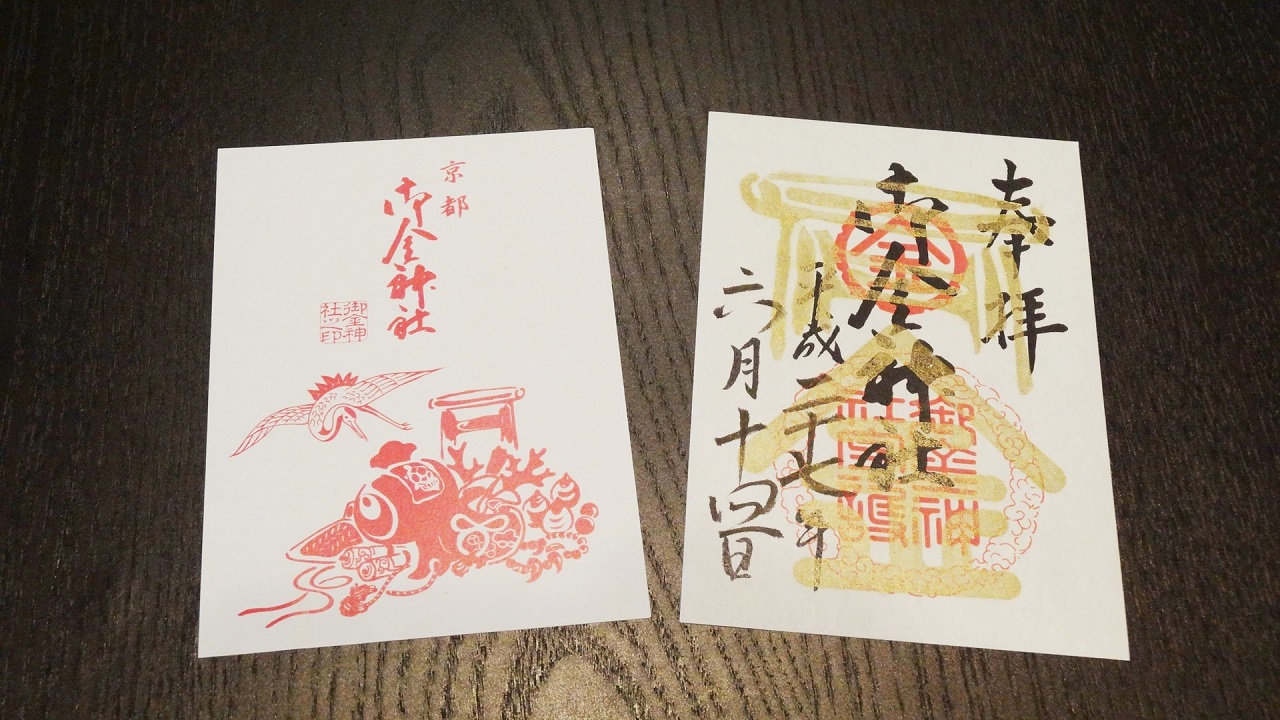 京都
御金神社
御金神
社之印
奉拝
御金神社
金
御金神
社宝
平成二十七年
六月十四日